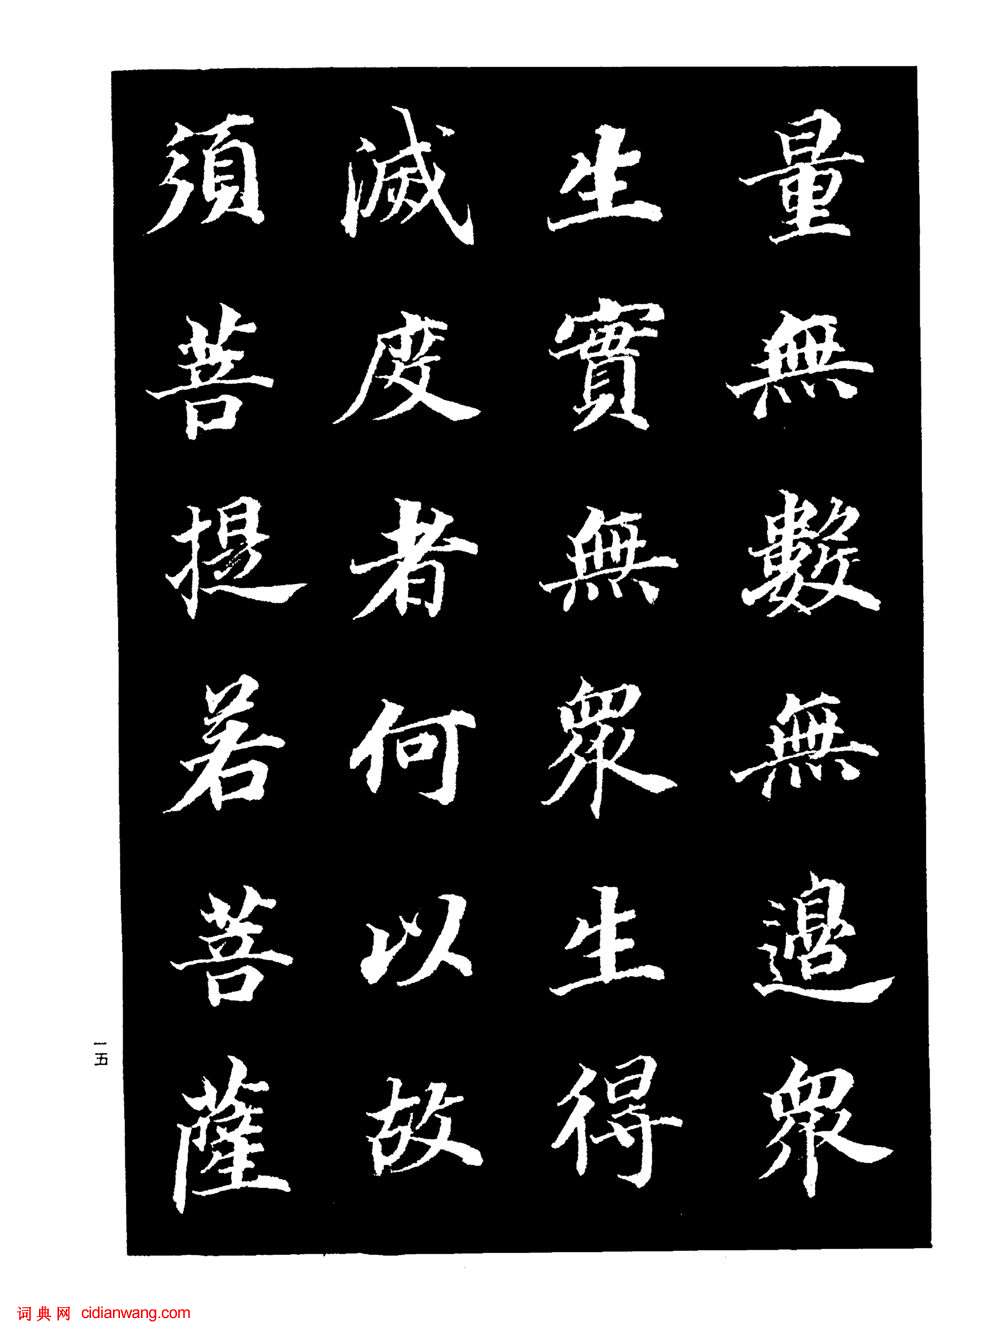 量無數無邊衆
生實無衆生得
滅度者何以故
須菩提若菩薩
一五
词典网 cidianwang.com